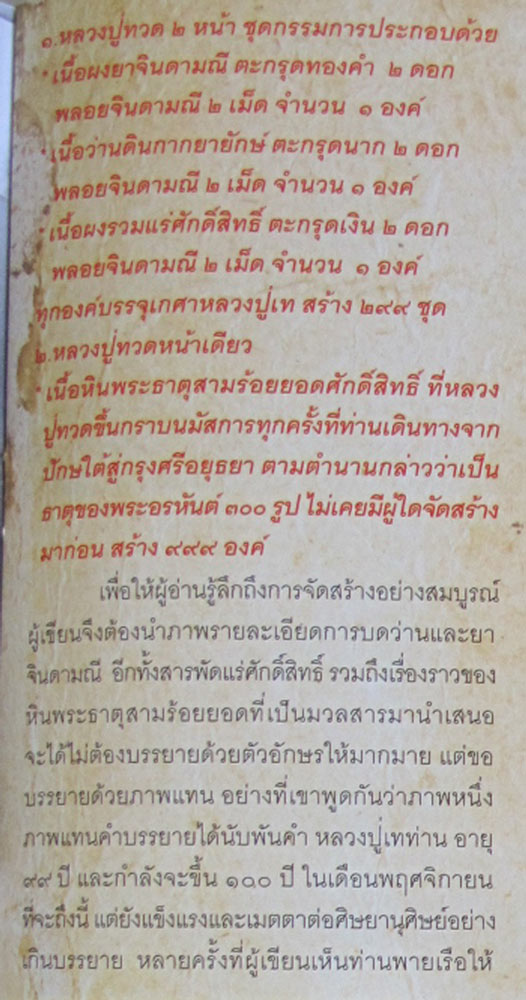 ๑.หลวงปู่ทวด ๒ หน้า ชุดกรรมการประกอบด้วย
*เนื้อผงยาจินดามณี ตะกรุดทองคำ ๒ ดอก
พลอยจินดามณี ๒ เม็ด จำนวน ๑ องค์
*เนื้อว่านดินกากยายักษ์ ตะกรุดนาก ๒ ดอก
พลอยจินดามณี ๒ เม็ด จำนวน ๑ องค์
*เนื้อผงรวมแร่ศักดิ์สิทธิ์ ตะกรุดเงิน ๒ ดอก
พลอยจินดามณี ๒ เม็ด จำนวน ๑ องค์
ทุกองค์บรรจุเกศาหลวงปู่เท สร้าง ๒๙๙ ชุด
๒.หลวงปู่ทวดหน้าเดียว
*เนื้อหินพระธาตุสามร้อยยอดศักดิ์สิทธิ์ ที่หลวง
ปู่ทวดขึ้นกราบนมัสการทุกครั้งที่ท่านเดินทางจาก
ปักษ์ใต้สู่กรุงศรีอยุธยา ตามตำนานกล่าวว่าเป็น
ธาตุของพระอรหันต์ ๓๐๐ รูป ไม่เคยมีผู้ใดจัดสร้าง
มาก่อน สร้าง ๙๙๙ องค์
เพื่อให้ผู้อ่านรู้ลึกถึงการจัดสร้างอย่างสมบูรณ์
ผู้เขียนจึงต้องนำภาพรายละเอียดการบดว่านและยา
จินดามณี อีกทั้งสารพัดแร่ศักดิ์สิทธิ์ รวมถึงเรื่องราวของ
หินพระธาตุสามร้อยยอดที่เป็นมวลสารมานำเสนอ
จะได้ไม่ต้องบรรยายด้วยตัวอักษรให้มากมาย แต่ขอ
บรรยายด้วยภาพแทน อย่างที่เขาพูดกันว่าภาพหนึ่ง
ภาพแทนคำบรรยายได้นับพันคำ หลวงปู่เทท่าน อายุ
๙๙ ปี และกำลังจะขึ้น ๑๐๐ ปี ในเดือนพฤศจิกายน
ที่จะถึงนี้ แต่ยังแข็งแรงและเมตตาต่อศิษยานุศิษย์อย่าง
เกินบรรยาย หลายครั้งที่ผู้เขียนเห็นท่านพายเรือให้